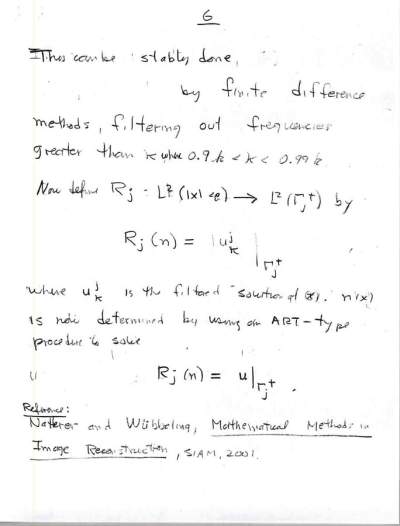 6
This can be stably done,
by finite difference
methods, filtering out frequencies
greater than κ where 0.9 k < κ < 0.99 k
Now define Rj : L² (|x| < ρ) → L² (Γj⁺) by
Rj (n) = u^j_κ |Γj⁺
where u^j_κ is the filtered solution of (8). n(x)
is now determined by using an ART-type
procedure to solve
Rj (n) = u|Γj⁺ .
Reference:
Natterer and Wübbeling, Mathematical Methods in
Image Reconstruction, SIAM, 2001.